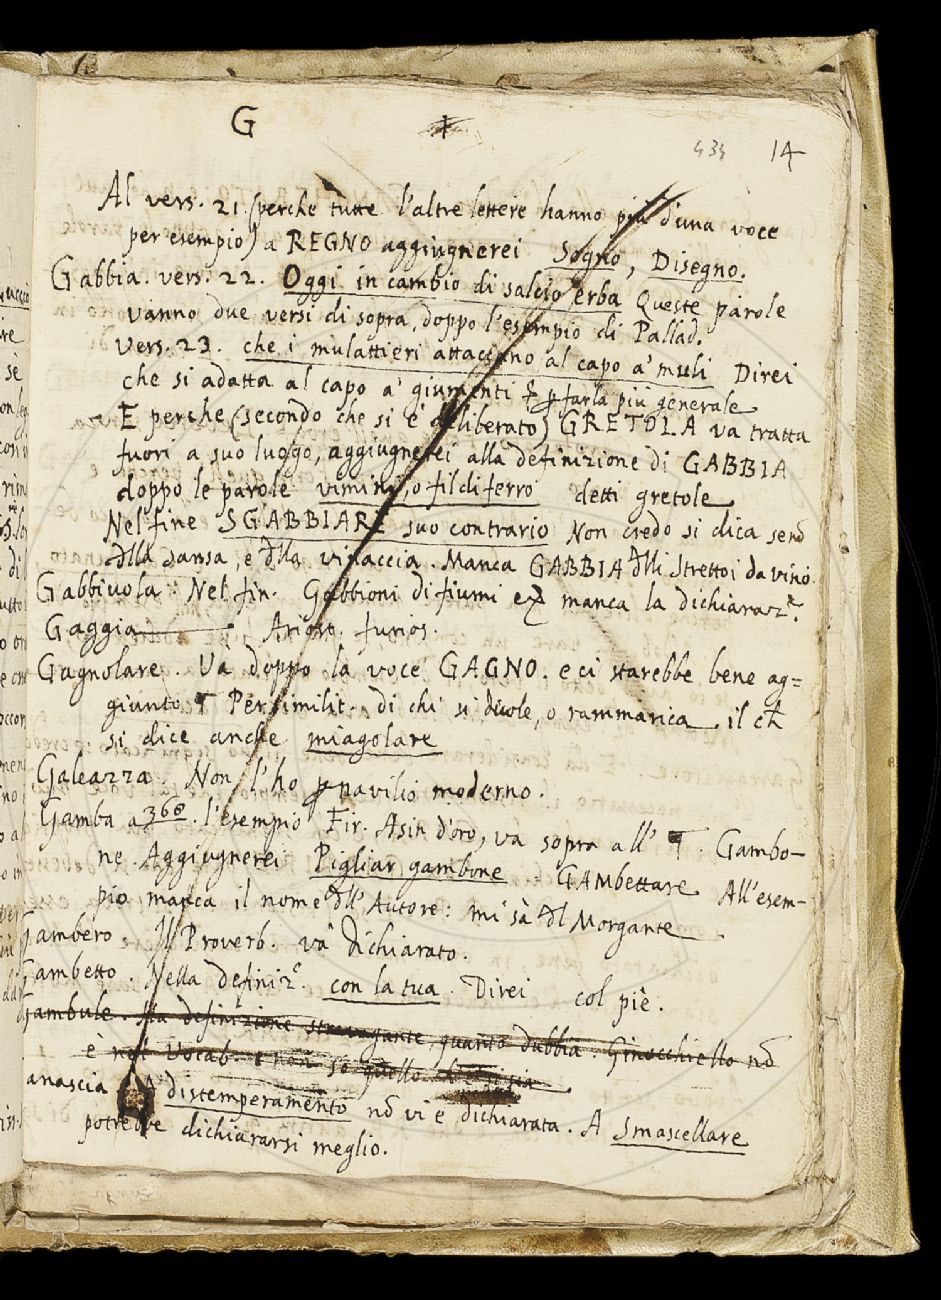 G
434 14
Al vers. 21 (perche tutte l'altre lettere hanno più d'una voce
per esempio) a REGNO aggiugnerei Sogno, Disegno.
Gabbia. vers. 22. Oggi in cambio di salcio, erba Queste parole
vanno due versi di sopra, doppo l'esempio di Pallad.
Vers. 23. che i mulattieri attaccano al capo a' muli Direi
che si adatta al capo a' giumenti farla più generale
E perche (secondo che si è deliberato) GRETOLA va tratta
fuori a suo luogo, aggiugnerei alla definizione di GABBIA
doppo le parole vimini, o fil di ferro detti gretole
Nel fine SGABBIARE suo contrario Non credo si dica
sansa, e vinaccia. Manca GABBIA Strettoi da vino.
Gabbivola. Nel fin. Gabbioni di fiumi manca la dichiaraz.e
Gaggia Ariost. furios.
Gagnolare. Và doppo la voce GAGNO. e ci starebbe bene ag=
giunto ¶ Per similit. di chi si duole, o rammarica il
si dice anche miagolare
Galeazza. Non l'ho navilio moderno.
Gamba a 368. l'esempio Fir. Asin d'oro, và sopra all' ¶. Gambo-
ne. Aggiugnerei Pigliar gambone. GAMBettare All'esem-
pio manca il nome Autore: mi sà Morgante
Gambero Il Proverb. và dichiarato.
Gambetto. Nella definiz.e con la tua. Direi col piè.
Gambule. definizione stravagante, quanto dubbia. Ginocchiello
è nel Vocab. e non so quello
anascia A distemperamento vi è dichiarata. A Smascellare
potrebbe dichiararsi meglio.